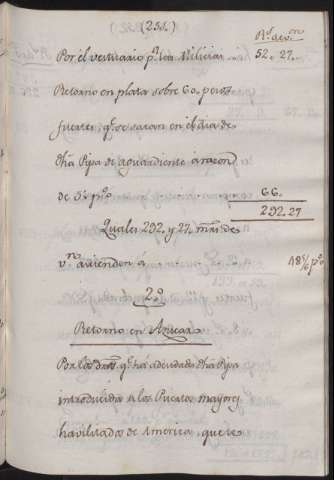 (231.)
R.s de v.on
Por el vestuario p.a las Milicias... 52.. 27..
Retorno en plata sobre 60. pesos
fuertes q.e se sacan en el dia de
dha Pipa de aguardiente á razon
de 5½ p.%
66.
292.27
Quales 292. y 27. mrs. de
v.n ascienden á
18⅚ p.%
2.º
Retorno en Azucar
Por los dros. q.e há adeudado dha Pipa
introducida en los Puertos mayores
havilitados de America, que se